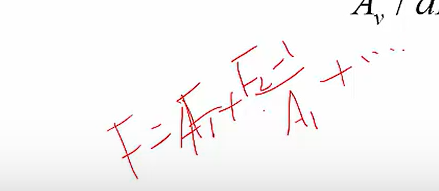 A_v / d
F = F_1 + \frac{F_2 - 1}{A_1} + ....